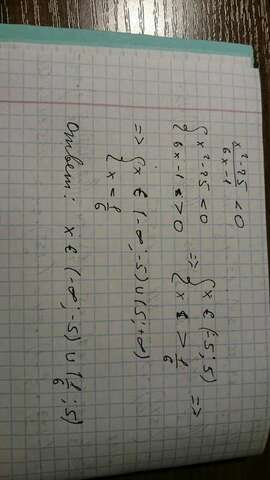 x²-25
6x-1 < 0
{ x²-25 < 0 => { x ∈ (-5; 5) =>
6x-1 > 0 x > 1/6
=> { x ∈ (-∞; -5) ∪ (5; +∞)
x = 1/6
Ответ: x ∈ (-∞; -5) ∪ (1/6; 5)